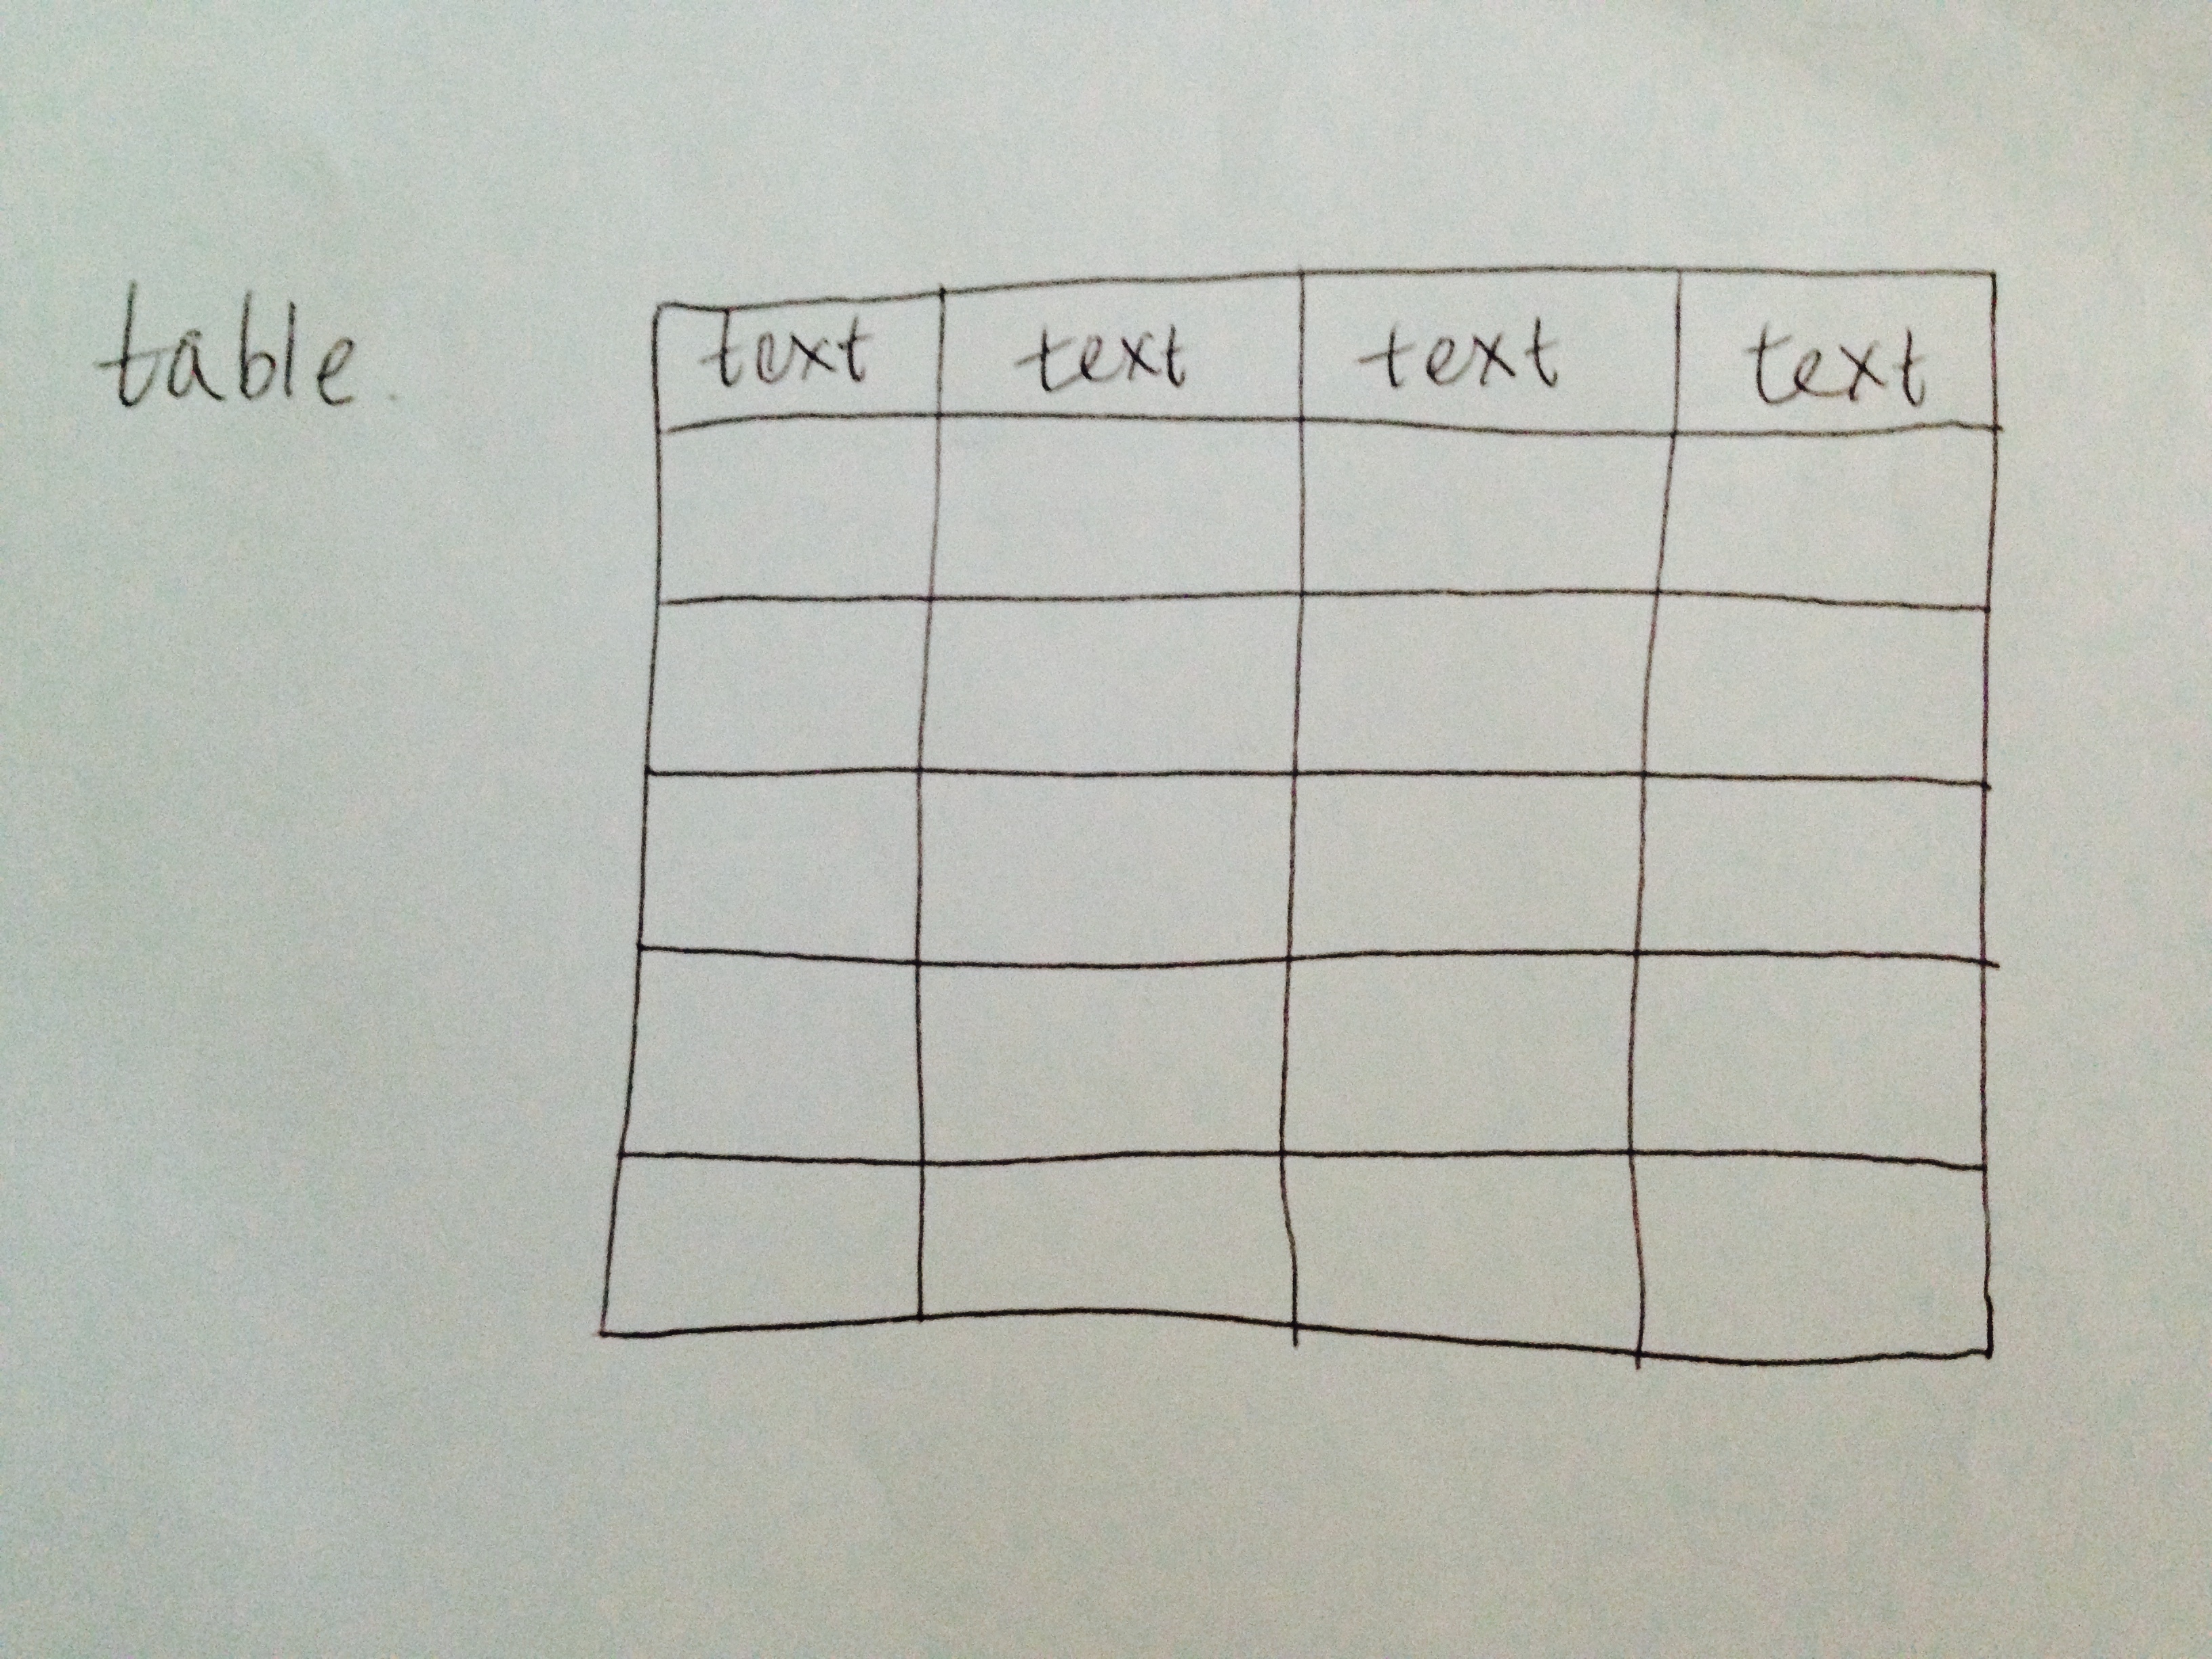 table
text text text text